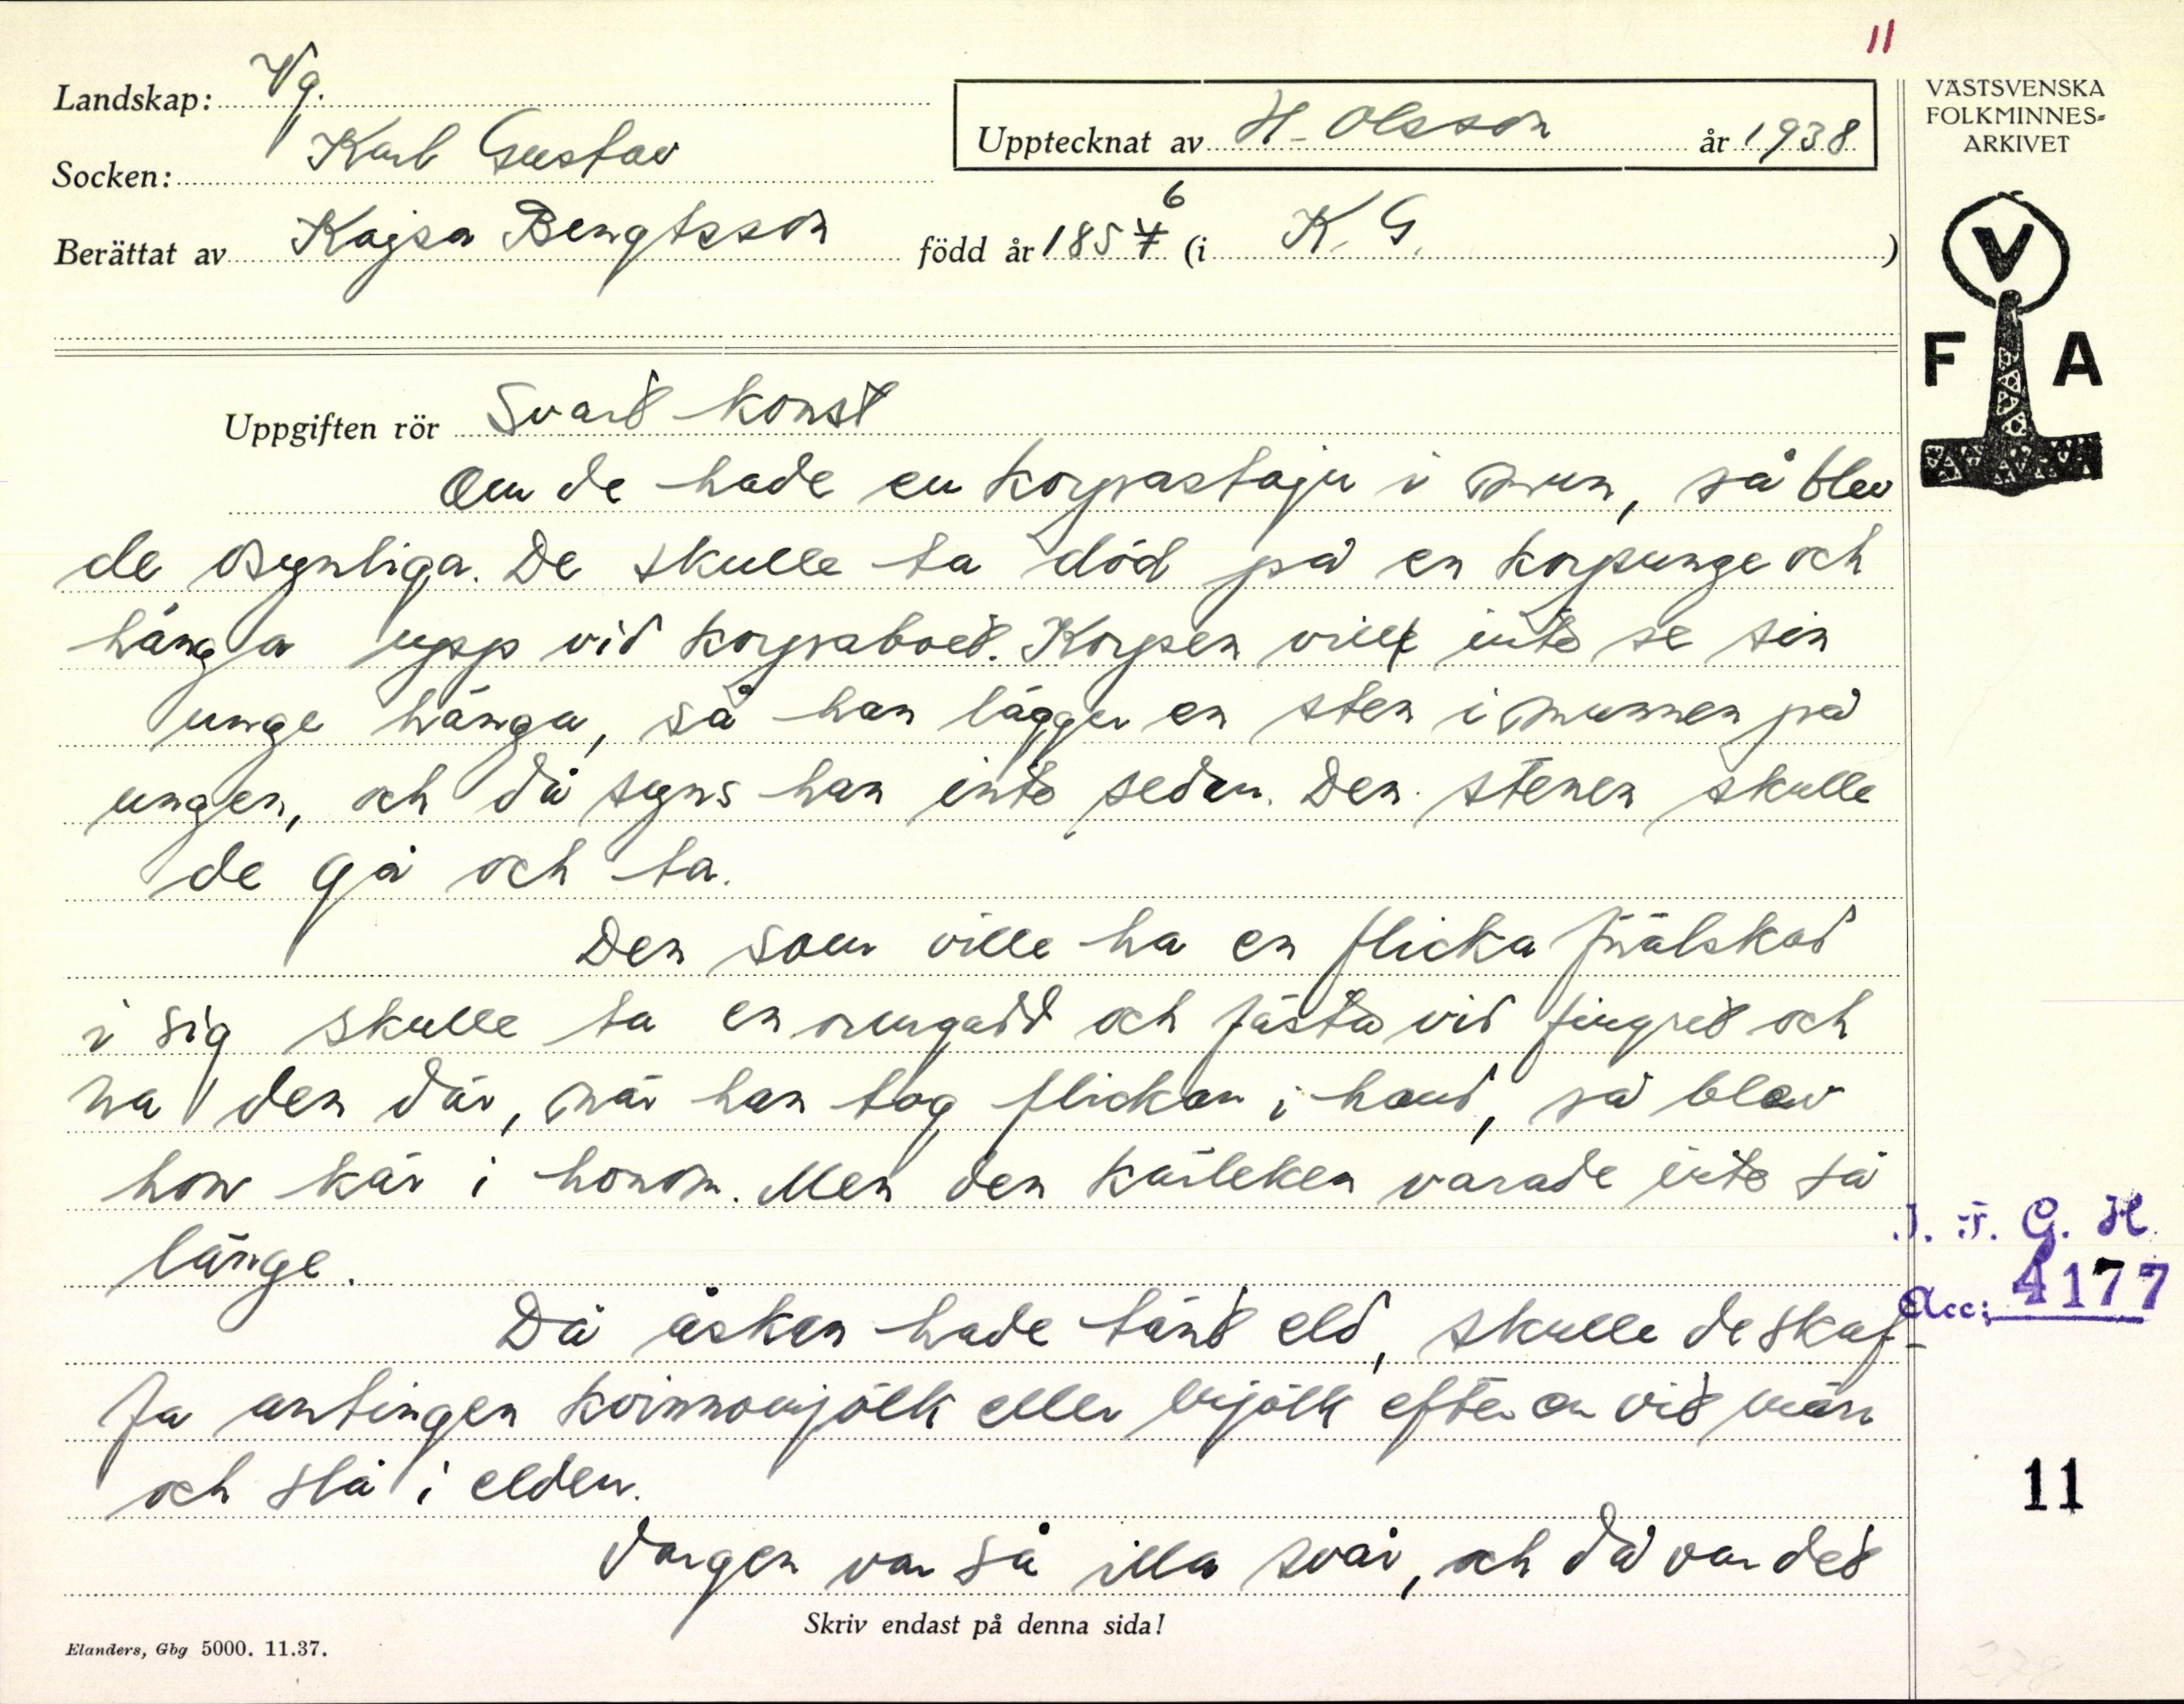 11
Landskap: Vg.
Socken: Karl Gustav
Upptecknat av H. Olsson år 1938
Berättat av Kajsa Bengtsson född år 1856 (i K. G.)
VÄSTSVENSKA
FOLKMINNES-
ARKIVET
V
F A
Uppgiften rör Svart konst
Om de hade en korpastajn i mun, så blev
de osynliga. De skulle ta död på en korpunge och
hänga upp vid korpaboet. Korpen vill inte se sin
unge hänga, så han lägger en sten i munnen på
ungen, och då syns han inte sedan. Den stenen skulle
de gå och ta.
Den som ville ha en flicka förälskad
i sig skulle ta en ormgadd och fästa vid fingret och
ha den där, när han tog flickan i hand, så blev
hon kär i honom. Men den kärleken varade inte så
länge.
Då åskan hade tänt eld, skulle de skaf-
fa antingen kvinnomjölk eller mjölk efter en vit märr
och slå i elden.
Vargen var så illa svår, och då var det
J. F. G. H.
Acc: 4177
11
Skriv endast på denna sida!
Elanders, Gbg 5000. 11.37.